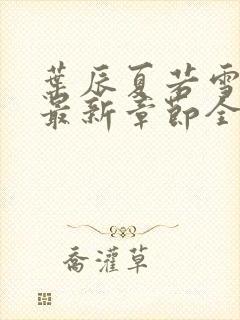 葉辰夏若雪
最新章節全
喬灌草